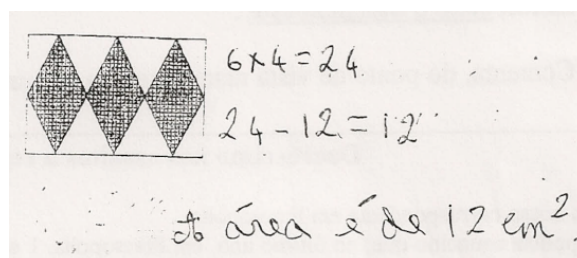 6×4=24
24-12=12
A área é de 12 cm².